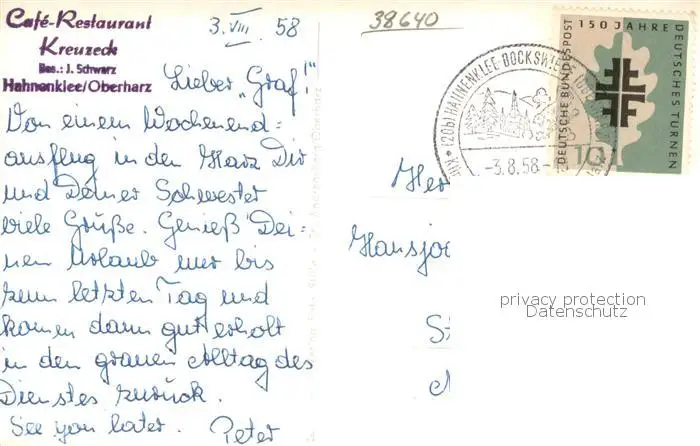 Café-Restaurant
Kreuzeck
Bes.: J. Schwarz
Hahnenklee/Oberharz
3. VIII. 58
38640
Lieber „Graf!"
Von einem Wochenend=
ausflug in den Harz Dir
und Deiner Schwester
viele Grüße. Genieß Dei=
nen Urlaub nur bis
zum letzten Tag und
komm dann gut erholt
in den grauen Alltag des
Dienstes zurück.
See you later. Peter
(20b) HAHNENKLEE-BOCKSWIESE
-3.8.58-
150 JAHRE
DEUTSCHES TURNEN
DEUTSCHE BUNDESPOST
10
Her
Hansjo
privacy protection
Datenschutz